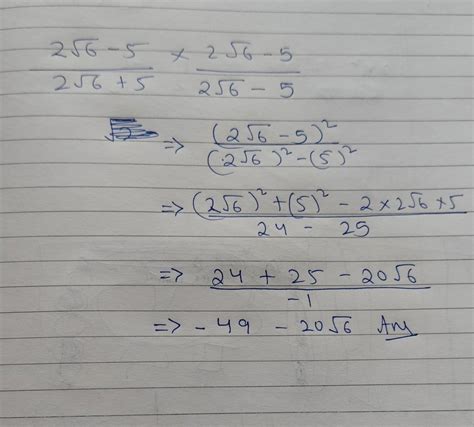 2√6 - 5 / 2√6 + 5 × 2√6 - 5 / 2√6 - 5
=> (2√6 - 5)² / (2√6)² - (5)²
=> (2√6)² + (5)² - 2 × 2√6 × 5 / 24 - 25
=> 24 + 25 - 20√6 / -1
=> - 49 - 20√6 Ans